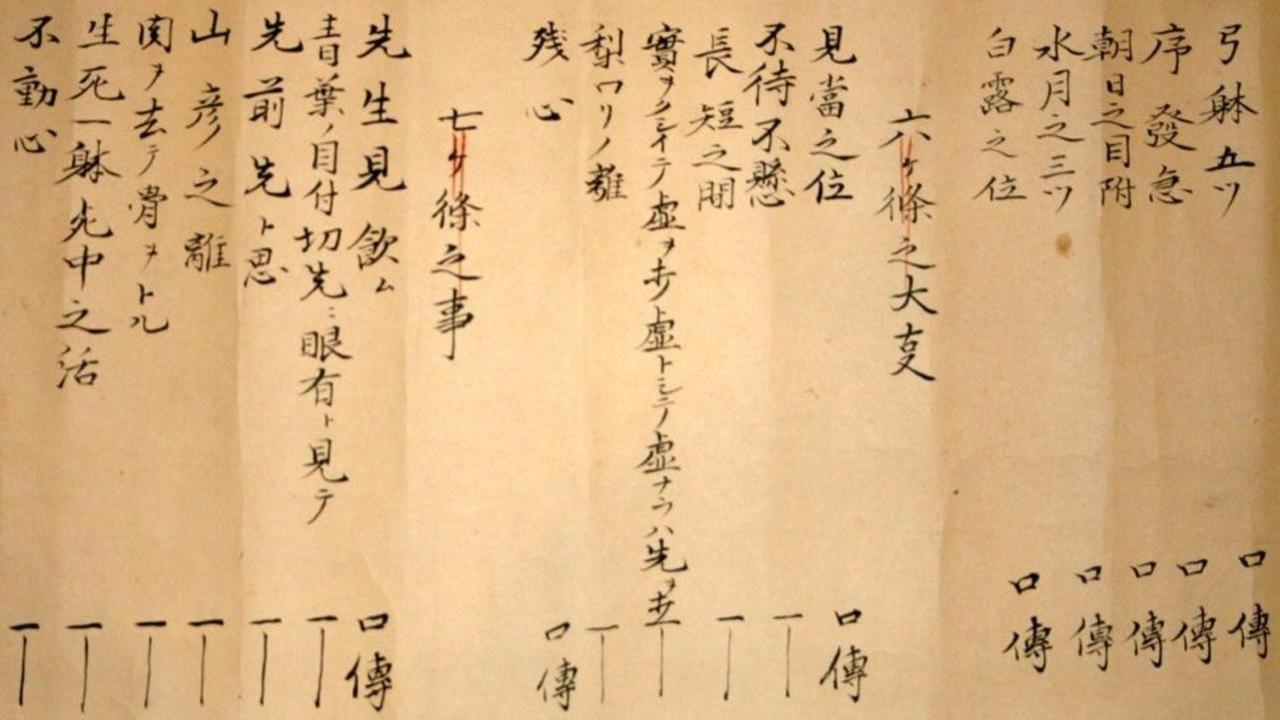 弓躰五ツ 口傳
序發急 口傳
朝日之目附 口傳
水月之三ツ 口傳
白露之位 口傳
六ヶ條之大亊
見當之位 口傳
不待不懸 〡
長短之間 〡
實ヲ テ虚ヲ ト虚トシテ虚ナラハ先ヲ 〡
梨口リノ離 〡
残心 口傳
七ヶ條之事
先生見飲ム 口傳
青葉ノ目付切先ニ眼有ト見テ 〡
先前先ト思 〡
山彦之離 〡
肉ヲ去テ骨ヲトル 〡
生死一躰死中之活 〡
不動心 〡